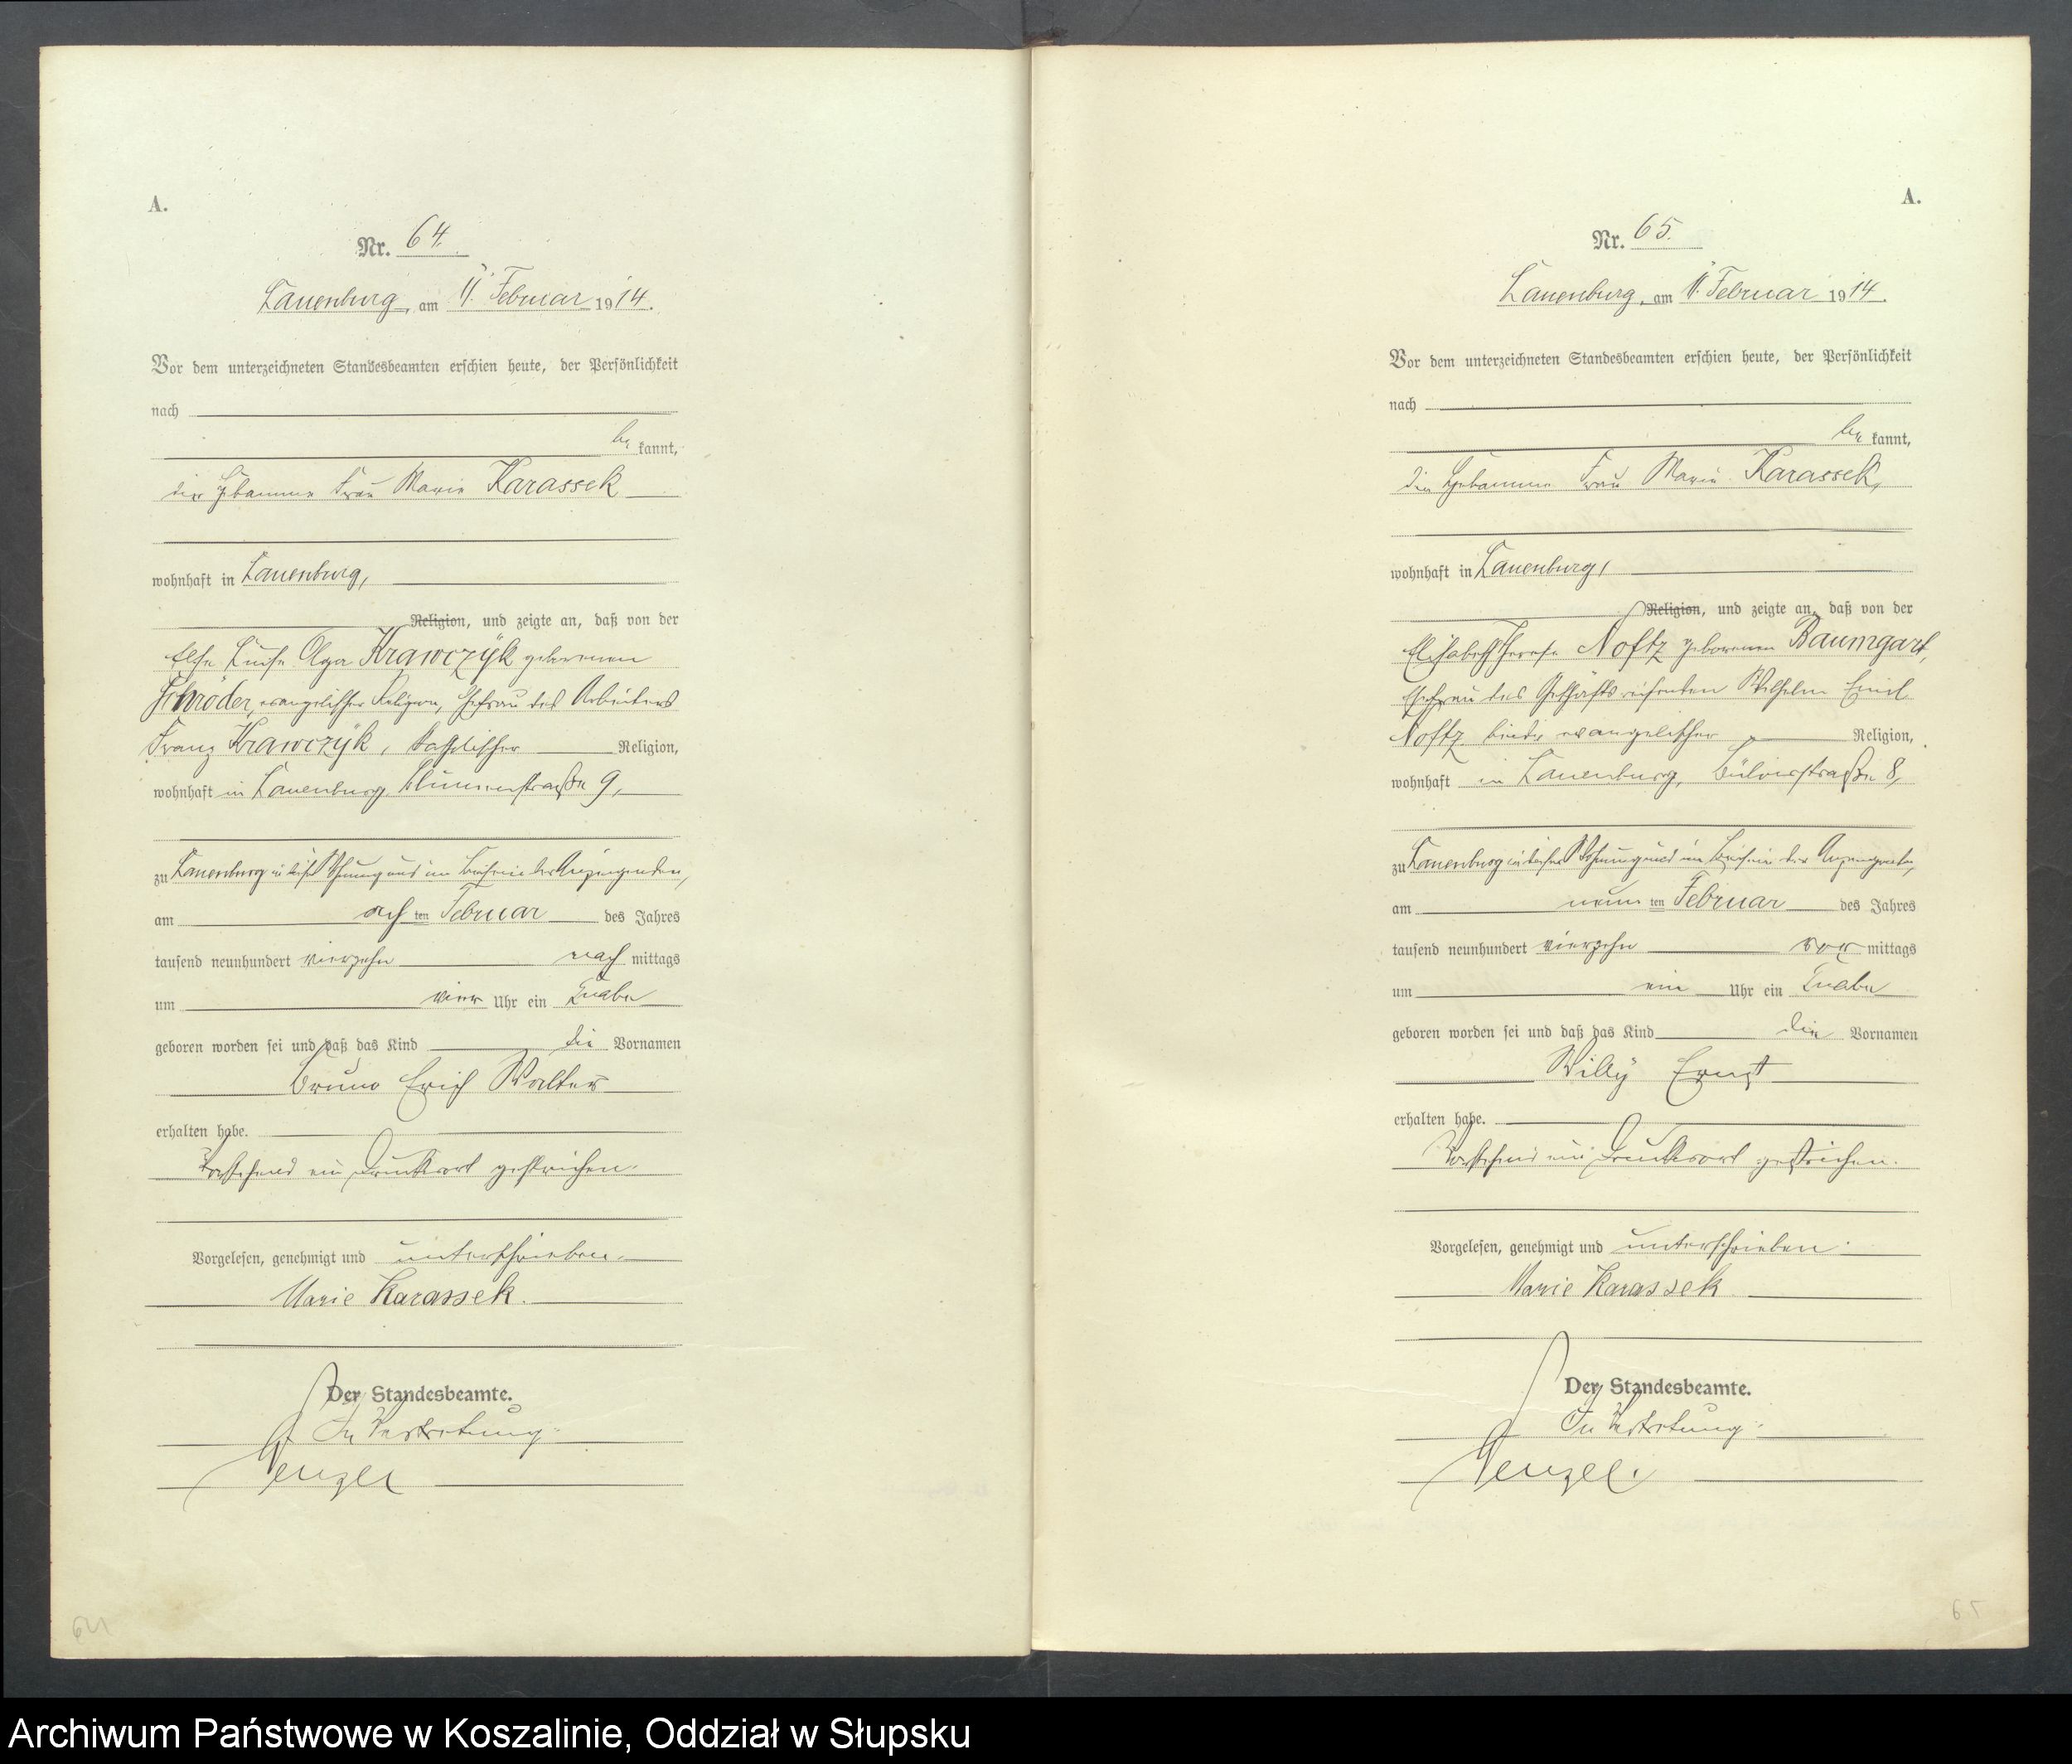 A.
Nr. 64.
Lauenburg, am 11. Februar 1914.
Vor dem unterzeichneten Standesbeamten erschien heute, der Persönlichkeit
nach
be kannt,
die Hebamme Frau Marie Karassek
wohnhaft in Lauenburg,
Religion, und zeigte an, daß von der
Else Luise Olga Krawczyk geborenen
Schröder, evangelischer Religion, Ehefrau des Arbeiters
Franz Krawczyk, katholischer Religion,
wohnhaft in Lauenburg, Blumenstraße 9,
zu Lauenburg in dieser Wohnung und im Beisein der Anzeigenden,
am acht ten Februar des Jahres
tausend neunhundert vierzehn nach mittags
um vier Uhr ein Knabe
geboren worden sei und daß das Kind die Vornamen
Bruno Erich Walter
erhalten habe.
Vorstehend ein Druckwort gestrichen.
Vorgelesen, genehmigt und unterschrieben.
Marie Karassek.
Der Standesbeamte.
In Vertretung.
64
A.
Nr. 65.
Lauenburg, am 11. Februar 1914.
Vor dem unterzeichneten Standesbeamten erschien heute, der Persönlichkeit
nach
be kannt,
die Hebamme Frau Marie Karassek,
wohnhaft in Lauenburg,
Religion, und zeigte an, daß von der
Elisabeth Therese Noftz geborenen Baumgart,
Ehefrau des Geschäftsreisenden Wilhelm Emil
Noftz beide evangelischer Religion,
wohnhaft in Lauenburg, Bülowstraße 8,
zu Lauenburg in dieser Wohnung und im Beisein der Anzeigenden,
am neun ten Februar des Jahres
tausend neunhundert vierzehn vor mittags
um ein Uhr ein Knabe
geboren worden sei und daß das Kind die Vornamen
Willy Ernst
erhalten habe.
Vorstehend ein Druckwort gestrichen.
Vorgelesen, genehmigt und unterschrieben.
Marie Karassek
Der Standesbeamte.
In Vertretung.
65
Archiwum Państwowe w Koszalinie, Oddział w Słupsku